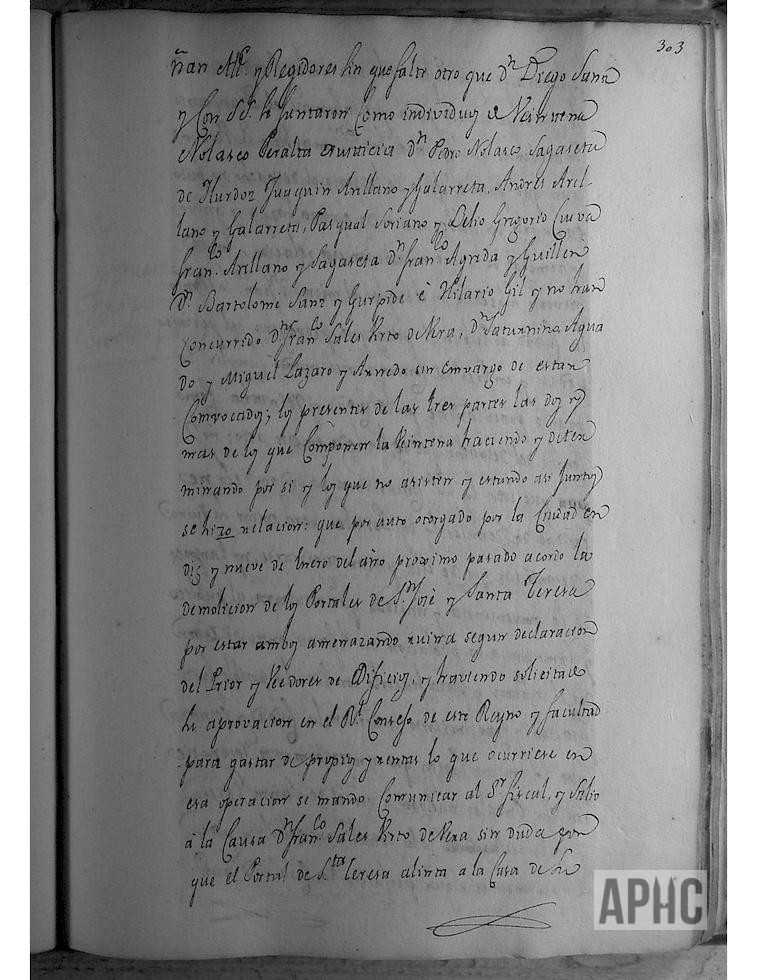 303
ñan Alc.e y Regidores sin que falte otro que D.n Diego Sanz
y con S.S. se juntaron como individuos de Veintena
Nolasco Peralta D.n Pedro Nolasco Sagaseta
de Ylurdoz Juaquin Arellano y Galarreta, Andres Arel-
lano y Galarreta, Pasqual Soriano y Gregorio Cueva
Fran.co Arellano y Sagaseta D.n Fran.co Agreda y Guillen
D.n Bartolome Sanz y Gurpide è Hilario Gil y no han
concurrido D.n Fran.co Sales Virto de Vera, D.n Saturnino Agua
do y Miguel Lazaro y Arnedo sin embargo de estar
convocados; los presentes de las tres partes las dos y
mas de los que componen la Veintena haciendo y deter
minando por si y los que no asisten y estando asi juntos
se hizo relacion: que por auto otorgado por la Ciudad en
diz y nueve de Enero del año proximo pasado acordo la
demolicion de los Portales de S.n Josè y Santa Teresa
por estar ambos amenazando ruina segun declaracion
del Prior y Veedores de Edificios, y haviendo solicitado
la aprovacion en el R.l Consejo de este Reyno y facultad
para gastar de propios y rentas lo que ocurriese en
esa operacion se mandò comunicar al S.r Fiscal, y Salio
a la Causa D.n Fran.co Sales Virto de Vera sin duda por
que el Portal de S.ta Teresa alinta a la Casa de su
APHC